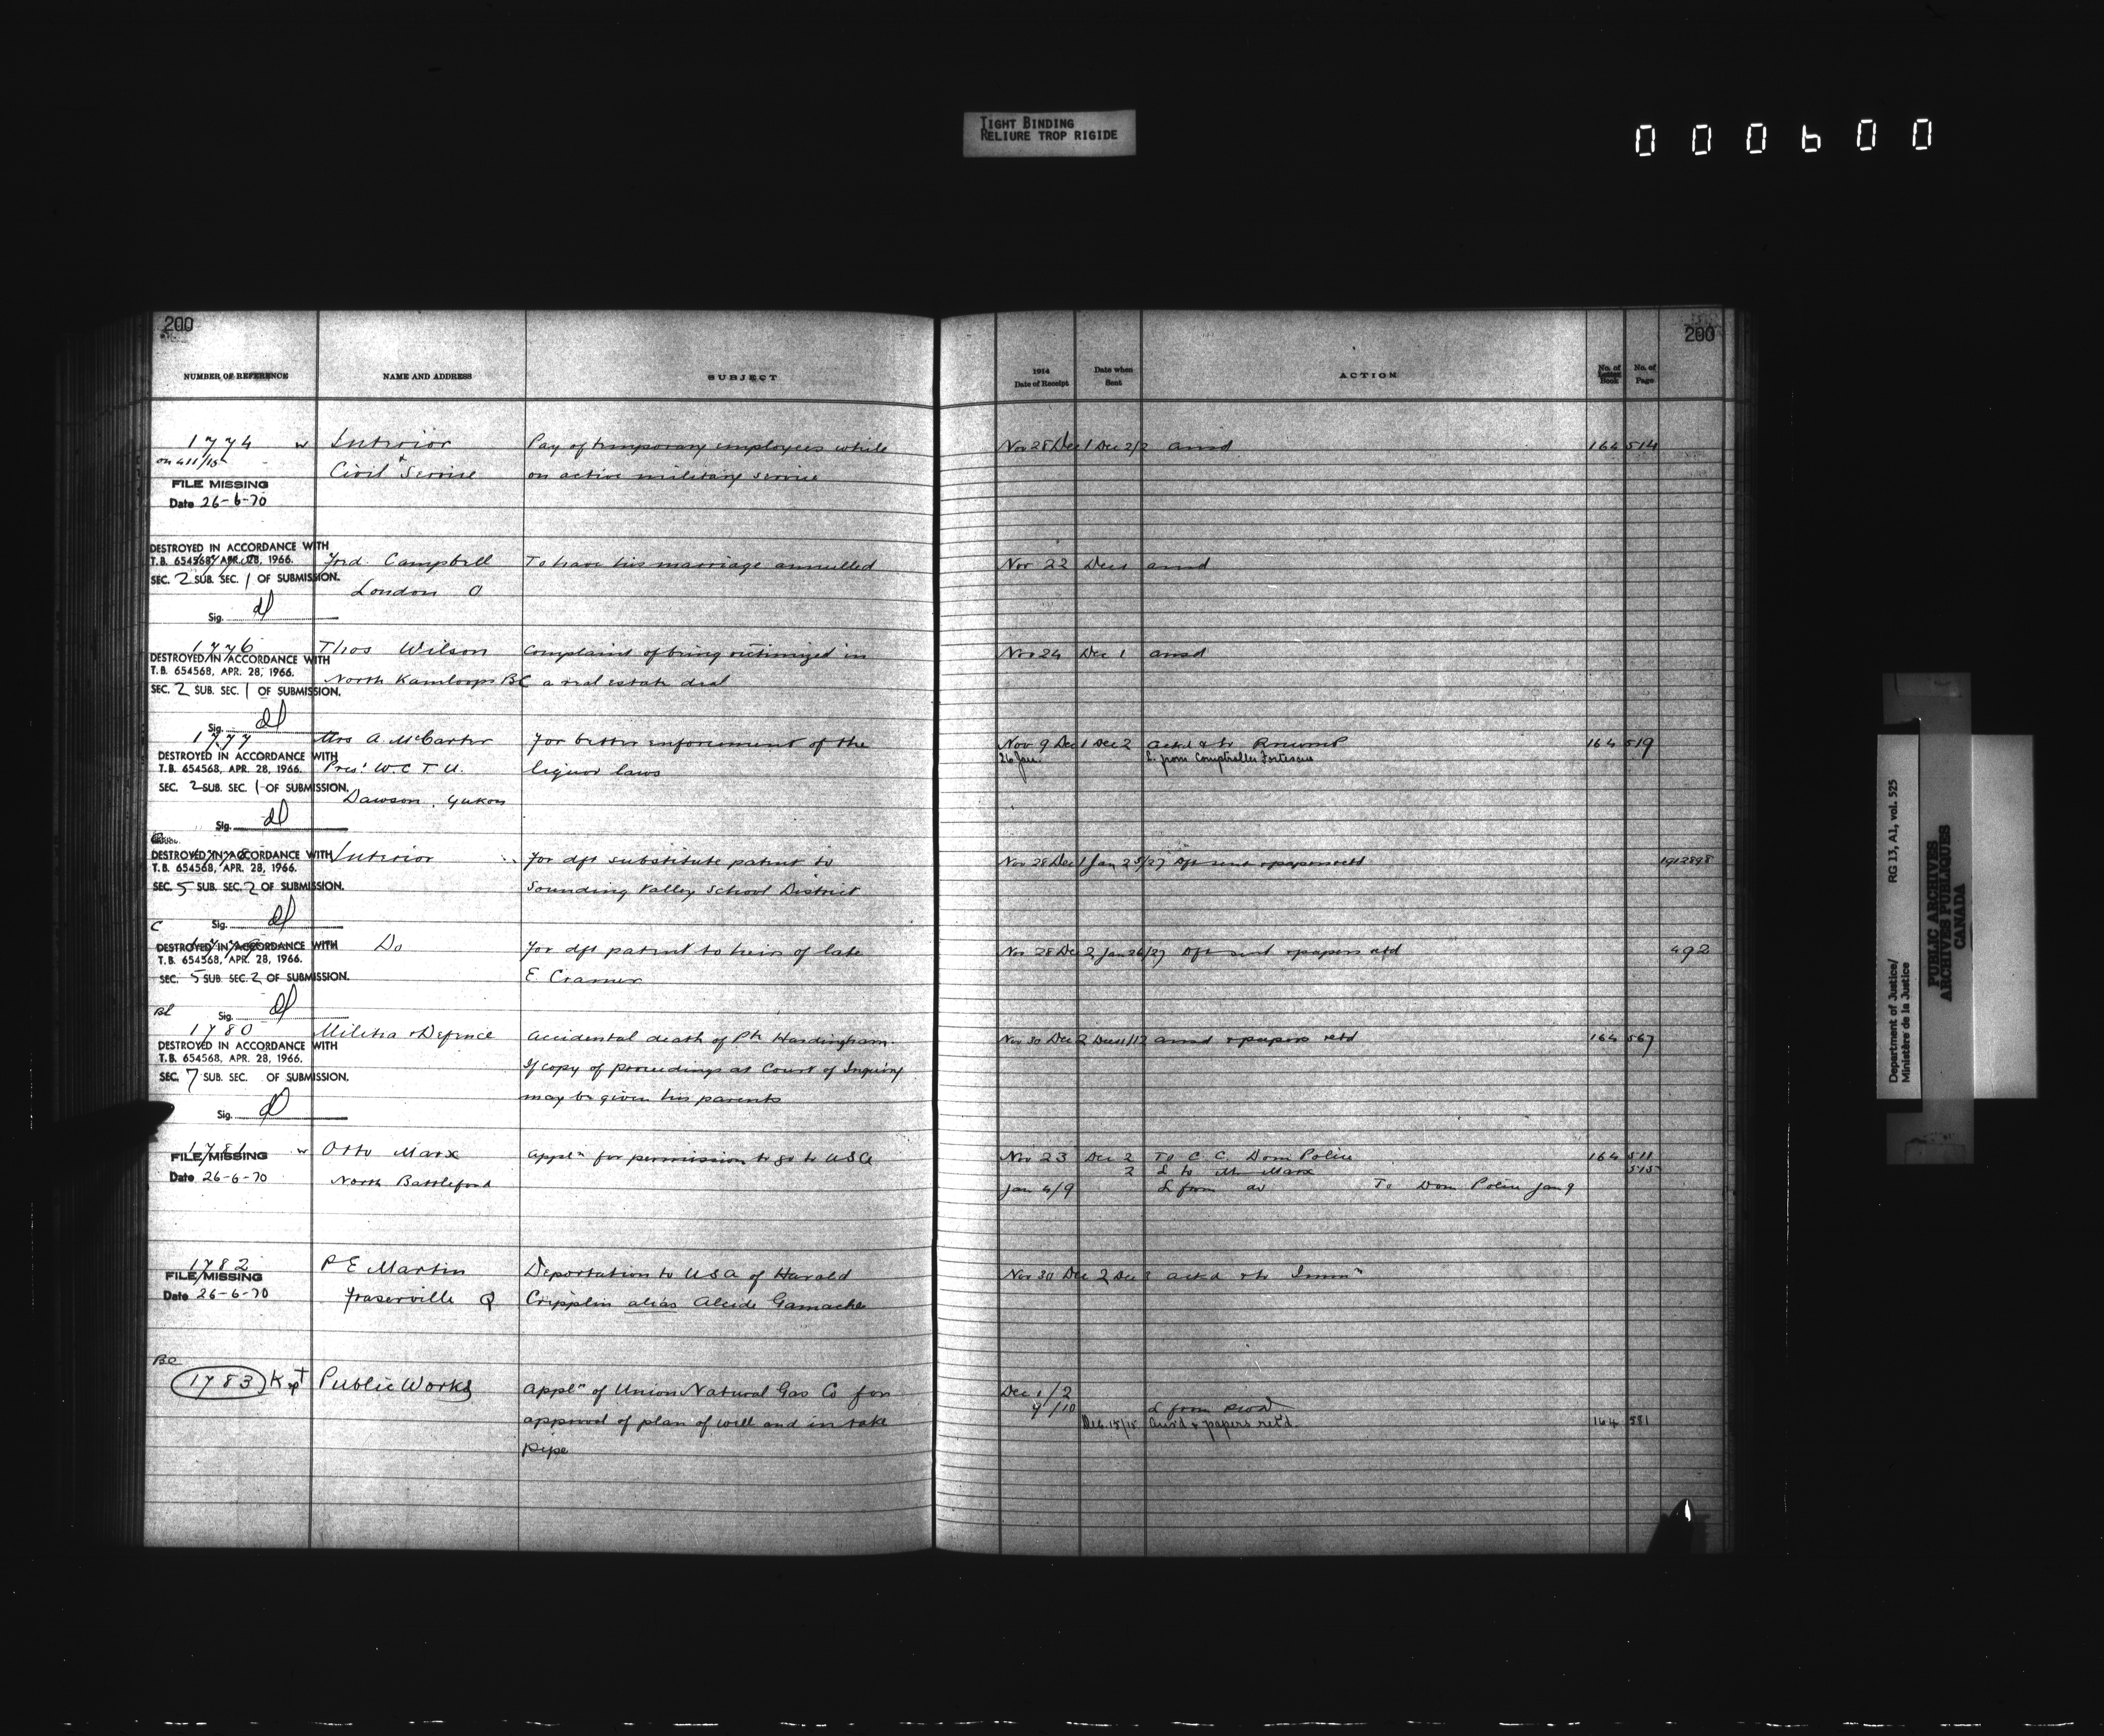 TIGHT BINDING
RELIURE TROP RIGIDE
000600
200
NUMBER OF REFERENCE NAME AND ADDRESS SUBJECT
1774 w Interior Pay of temporary employees while
on 411/15 &
Civil Service on active military service
FILE MISSING
Date 26-6-70
DESTROYED IN ACCORDANCE WITH
T.B. 654568, APR. 28, 1966. Ford. Campbell To have his marriage annulled
SEC. 2 SUB. SEC. 1 OF SUBMISSION.
London O
Sig. dl
1776 Thos Wilson Complaint of being victimized in
DESTROYED IN ACCORDANCE WITH
T.B. 654568, APR. 28, 1966.
North Kamloops BC a real estate deal
SEC. 2 SUB. SEC. 1 OF SUBMISSION.
Sig. dl
1777 Mrs A. McCarter For better enforcement of the
DESTROYED IN ACCORDANCE WITH
T.B. 654568, APR. 28, 1966. Pres' W.C.T.U. liquor laws
SEC. 2 SUB. SEC. 1 OF SUBMISSION.
Dawson, Yukon
Sig. dl
DESTROYED IN ACCORDANCE WITH Interior For dft substitute patent to
T.B. 654568, APR. 28, 1966.
SEC. 5 SUB. SEC. 2 OF SUBMISSION. Sounding Valley School District
Sig. dl
C
DESTROYED IN ACCORDANCE WITH Do For dft patent to heirs of late
T.B. 654568, APR. 28, 1966.
SEC. 5 SUB. SEC. 2 OF SUBMISSION. E Cramer
Sig. dl
1780 Militia & Defence Accidental death of Pte Hardingham.
DESTROYED IN ACCORDANCE WITH
T.B. 654568, APR. 28, 1966.
If copy of proceedings at Court of Inquiry
SEC. 7 SUB. SEC. OF SUBMISSION.
may be given his parents
Sig. dl
1781 w Otto Marx Appln for permission to go to USA
FILE MISSING
Date 26-6-70 North Battleford
1782 P E Martin Deportation to USA of Harold
FILE MISSING
Date 26-6-70 Fraserville Q Cripplin alias Alcide Gamache
BC
1783 Kept Public Works Appln of Union Natural Gas Co for
approval of plan of well and in take
pipe
200
1914 Date of Receipt Date when Sent ACTION No. of Letter Book No. of Page
Nov 28 Dec 1 Dec 2/2 ansd 164 514
Nov 22 Dec 1 ansd
Nov 24 Dec 1 ansd
Nov 9 Dec 1 Dec 2 ackd & to 164 519
26 Jan. L. from Comptroller Fortescue
Nov 28 Dec 1 Jan 25/27 Dft sent & papers retd 1912898
Nov 28 Dec 2 Jan 26/27 Dft sent & papers retd 492
Nov 30 Dec 2 Dec 11/12 ansd & papers retd 164 567
Nov 23 Dec 2 To C. C. Dom Police 164 511
2 L to Mr Marx 515
Jan 4/9 L from do To Dom Police Jan 9
Nov 30 Dec 2 Dec 3 ackd & to Immn
Dec 1/2
9/10 L from
Dec. 15/15 Ans'd & papers ret'd. 164 581
Department of Justice/
Ministère de la Justice
RG 13, A1, vol. 525
PUBLIC ARCHIVES
ARCHIVES PUBLIQUES
CANADA